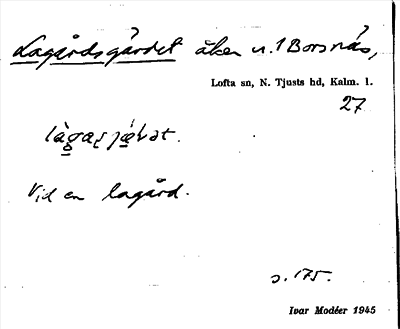 Lagårdsgärdet åker n. 1 Borsnäs,
Lofta sn, N. Tjusts hd, Kalm. l.
27
Vid en lagård.
s. 175.
Ivar Modéer 1945